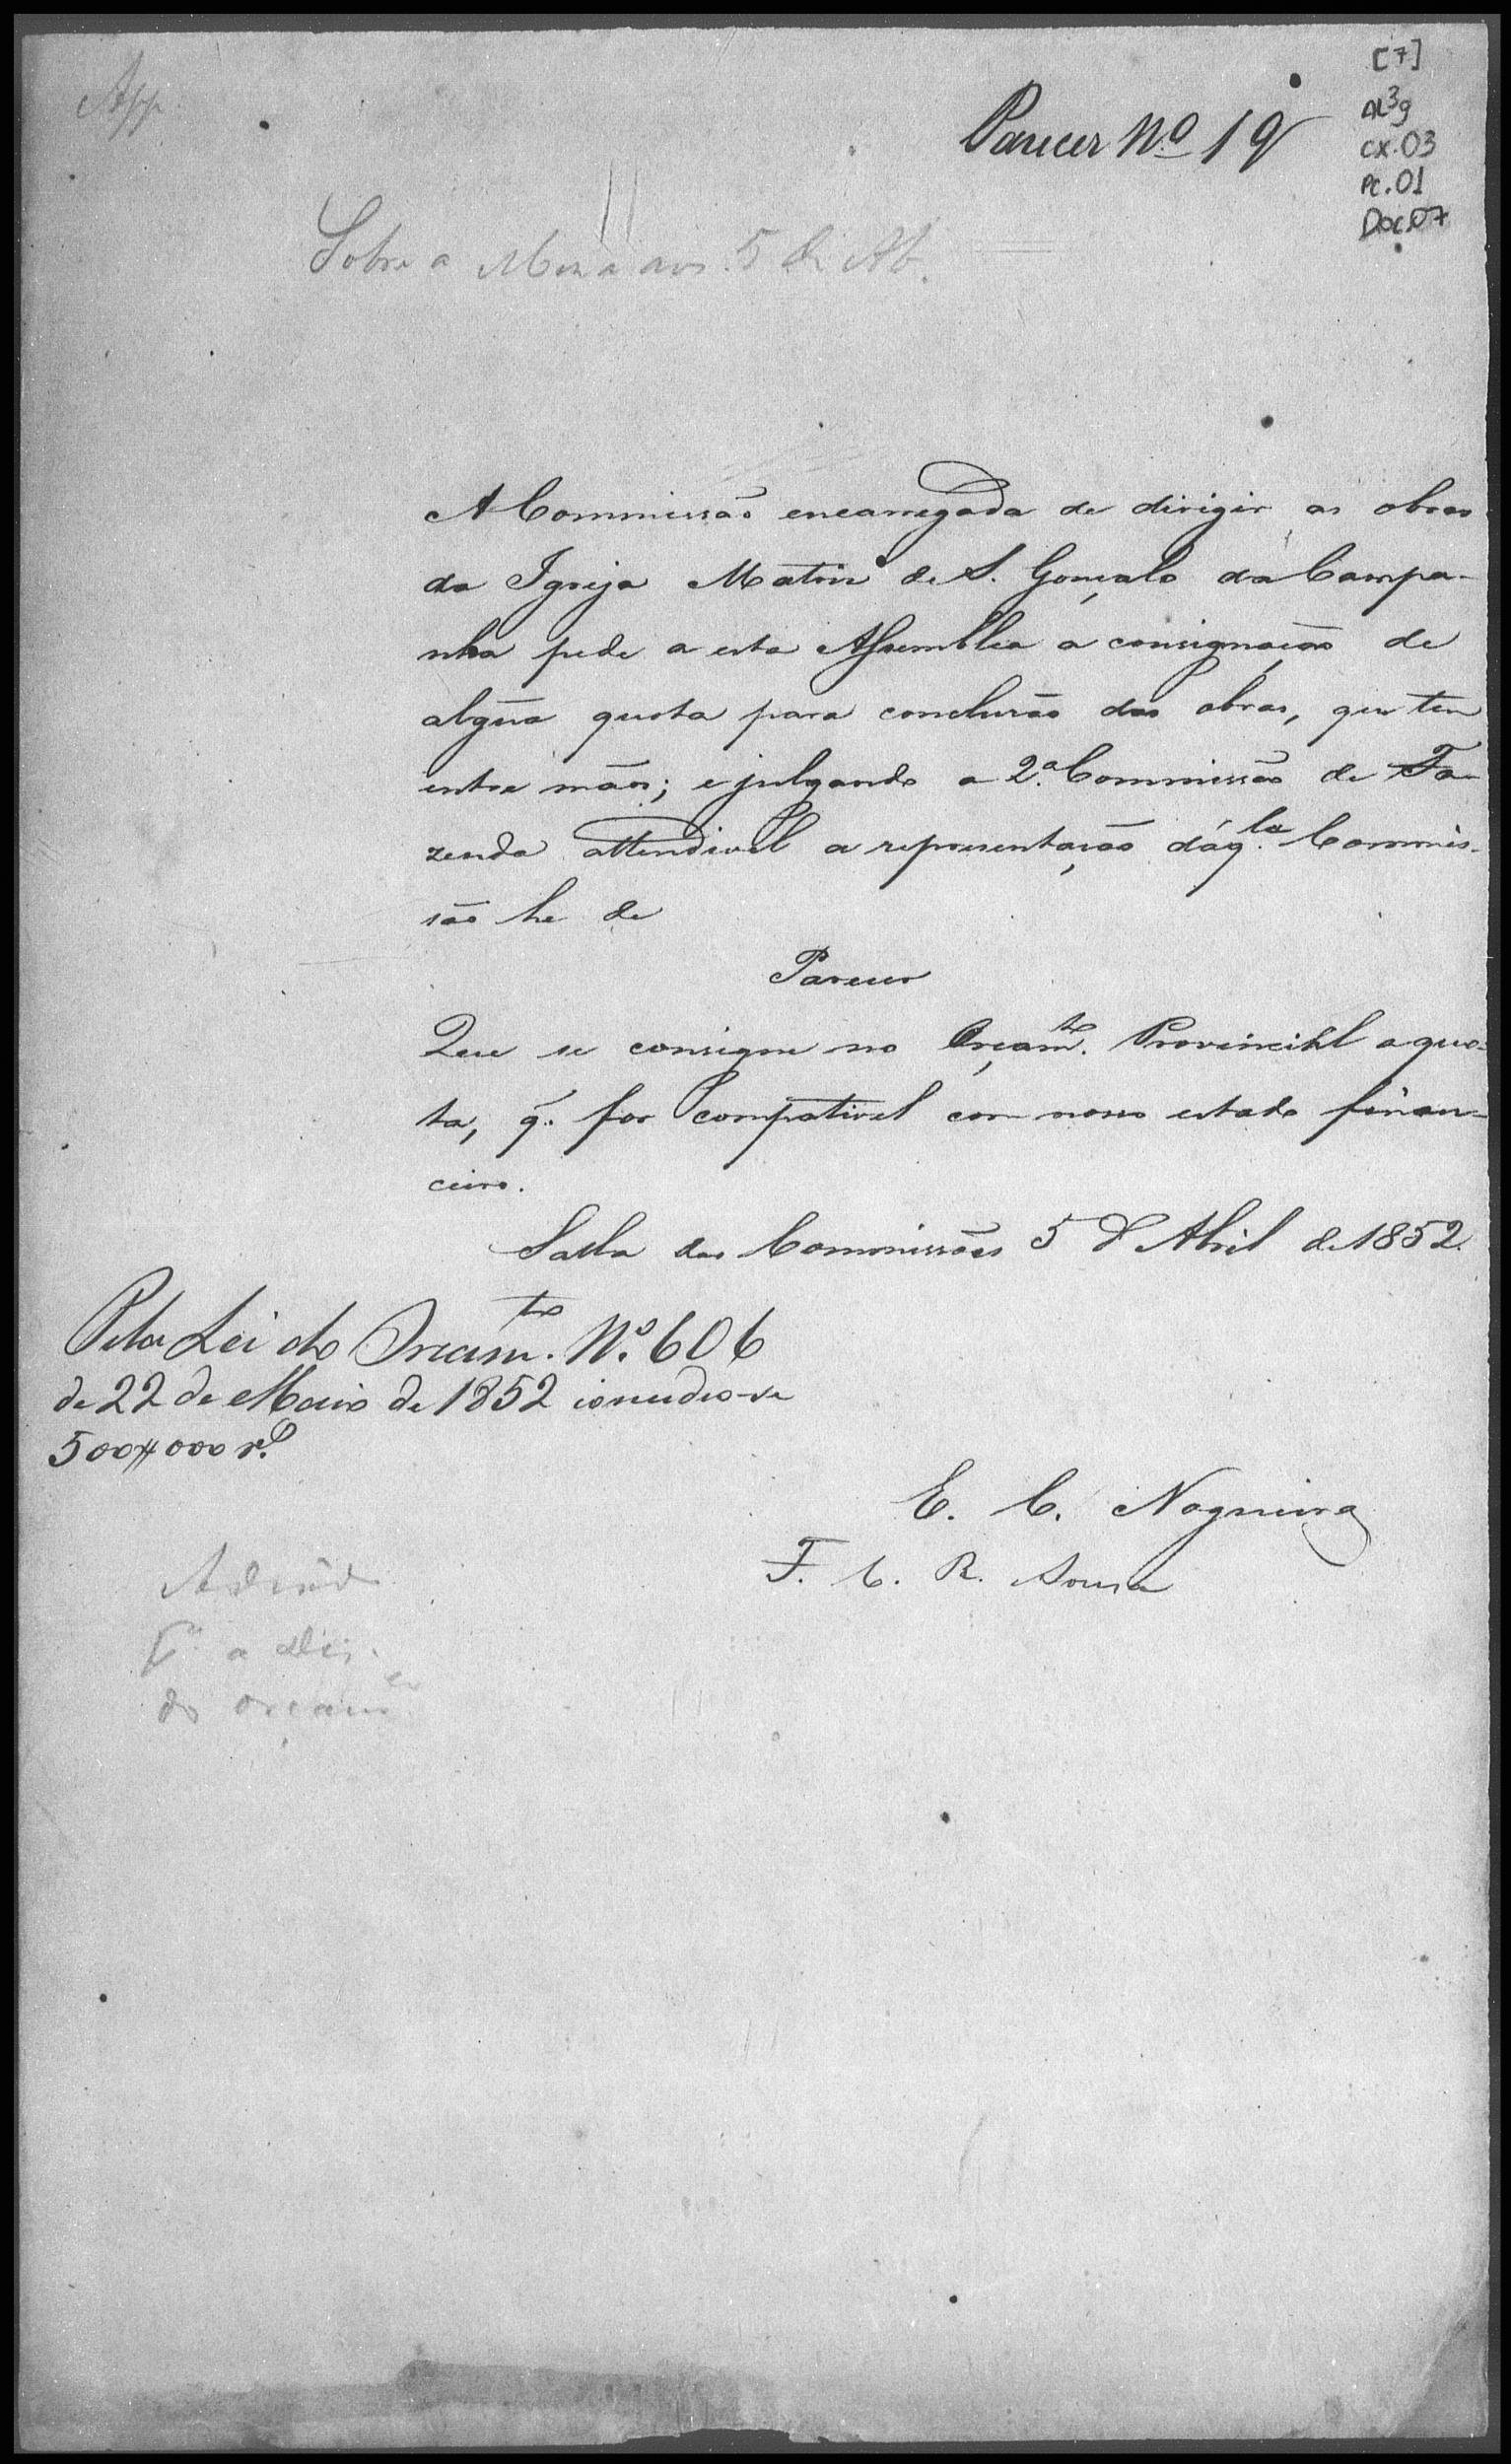 [7]
AL³9
CX.03
PC.01
Doc.07
App.
Parecer Nº 19
Sobre a Mesa aos 5 de Ab.
A Commissão encarregada de dirigir as obras
da Igreja Matriz de S. Gonçalo da Campa-
nha pede a esta Assemblea a consignação de
algũa quota para conclusão das obras, que tem
entre mãos; e julgando a 2.ª Commissão de Fa-
zenda attendivel a representação dáq.la Commis-
são he de
Parecer
Que se consigne no Orçam.to Provincial a quo-
ta, q̃. for compativel com nosso estado finan-
ceiro.
Salla das Commissões 5 d'Abril de 1852.
Pela Lei do Orcam.to Nº 606
de 22 de Maio de 1852 concedeo-se
500#000 rs.
E. C. Nogueira
F. C. R. Sousa
Adiad
pª a dis.
do orcam.to